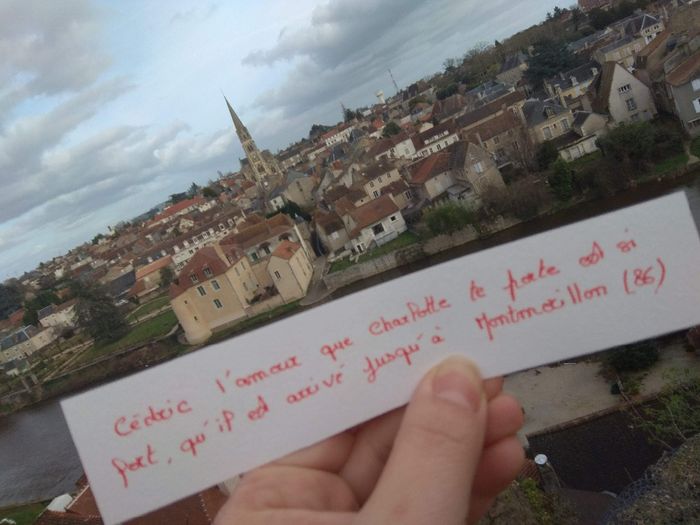 Cédric l'amour que Charlotte te porte est si
fort, qu'il est arrivé jusqu'à Montmorillon (86)